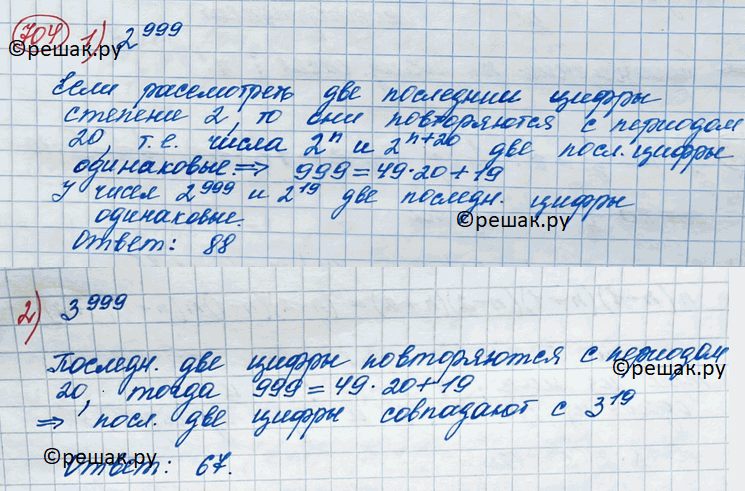 704 1) 2^999
©решак.ру
Если рассмотреть две последнии цифры
степени 2, то они повторяются с периодом
20, т.е. числа 2^n и 2^n+20 две посл. цифры
одинаковые ⇒ 999 = 49·20+19
У чисел 2^999 и 2^19 две последн. цифры
одинаковые.
©решак.ру
Ответ: 88
2) 3^999
Последн. две цифры повторяются с периодом
©решак.ру
20, тогда 999 = 49·20+19
⇒ посл. две цифры совпадают с 3^19
©решак.ру
Ответ: 67.